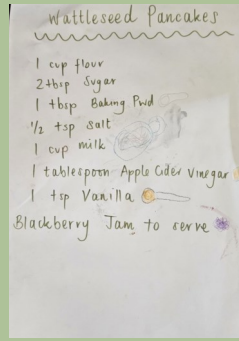 Wattleseed Pancakes
1 cup flour
2 tbsp Sugar
1 tbsp Baking Pwd
1/2 tsp Salt
1 cup milk
1 tablespoon Apple Cider Vinegar
1 tsp Vanilla
Blackberry Jam to serve